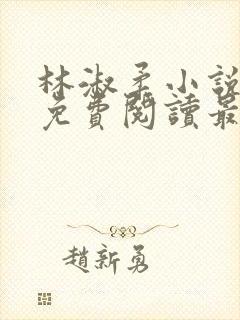 林淑柔小說
免費閱讀最
趙新勇